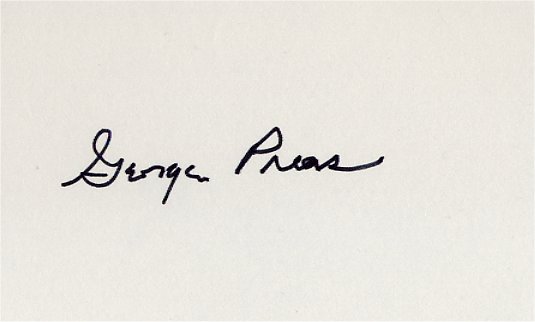 George Preas